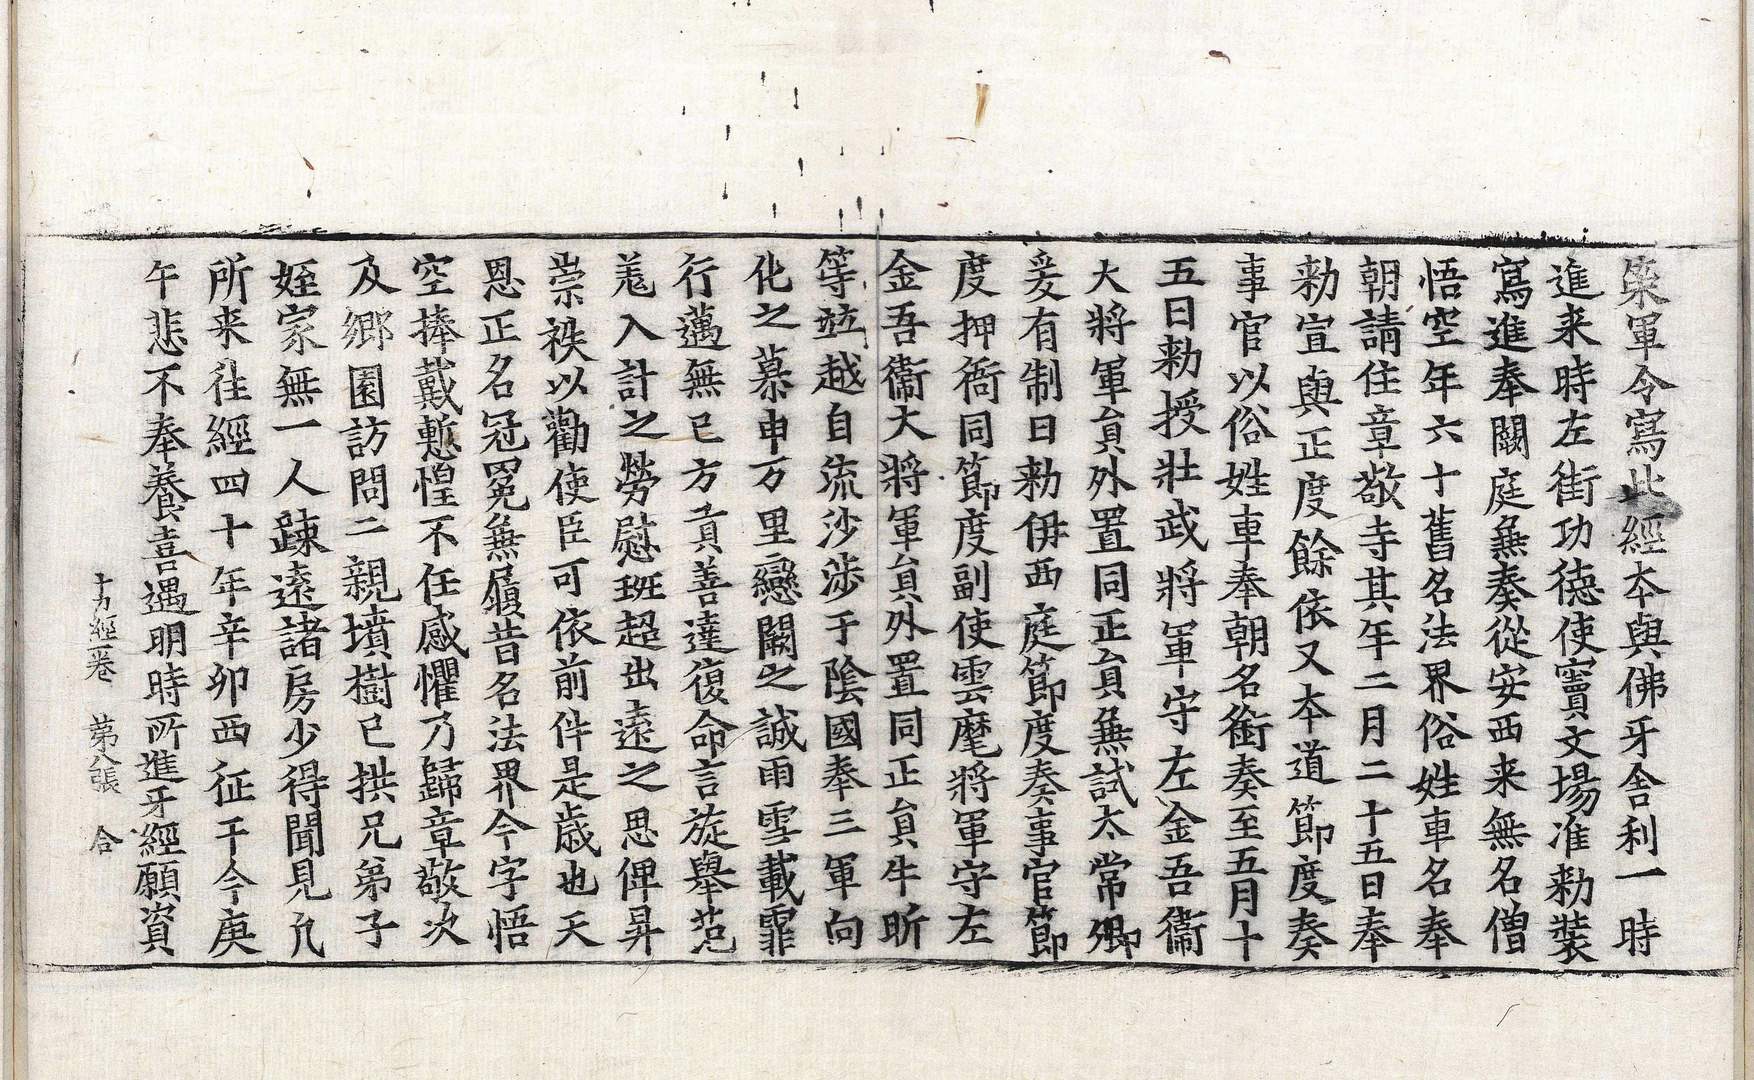 梁軍令寫此經本與佛牙舍利一時
進来時左街功德使竇文場准勑裝
寫進奉闕庭無奏從安西来無名僧
悟空年六十舊名法界俗姓車名奉
朝請住章敬寺其年二月二十五日奉
勑宣與正度餘依又本道節度奏
事官以俗姓車奉朝名銜奏至五月十
五日勑授壯武將軍守左金吾衞
大將軍貟外置同正貟無試太常卿
爰有制曰勑伊西庭節度奏事官節
度押衙同節度副使雲麾將軍守左
金吾衞大將軍貟外置同正貟牛昕
等竝越自流沙涉于陰國奉三軍向
化之慕申万里戀闕之誠雨雪載霏
行邁無已方貢善達復命言旋舉范
羗入計之勞慰班超出遠之思俾昇
崇袟以勸使臣可依前件是歳也天
恩正名冠冕無履昔名法界今字悟
空捧戴慙惶不任感懼乃歸章敬次
及郷園訪問二親墳樹已拱兄弟子
姪家無一人踈遠諸房少得聞見凢
所来往經四十年辛卯西征于今庚
午悲不奉養喜遇明時所進牙經願資
十力經一卷　苐八張　合